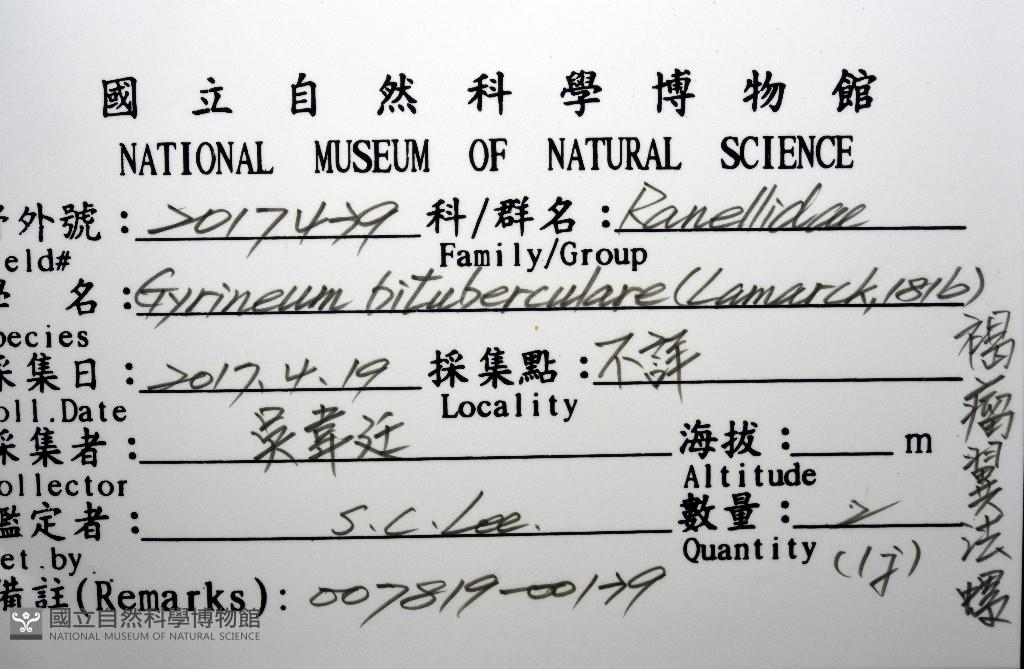 國立自然科學博物館
NATIONAL MUSEUM OF NATURAL SCIENCE
外號：
科/群名：Ranellidae
eld#
Family/Group
名：Gyrineum bituberculare (Lamarck, 1816)
pecies
採集日：2017.4.19
採集點：不詳
oll.Date
Locality
採集者：吳韋廷
海拔： m
ollector
Altitude
鑑定者：S.C. Lee.
數量：2
et.by.
Quantity
(1j)
備註(Remarks):
褐瘤翼法螺
國立自然科學博物館
NATIONAL MUSEUM OF NATURAL SCIENCE